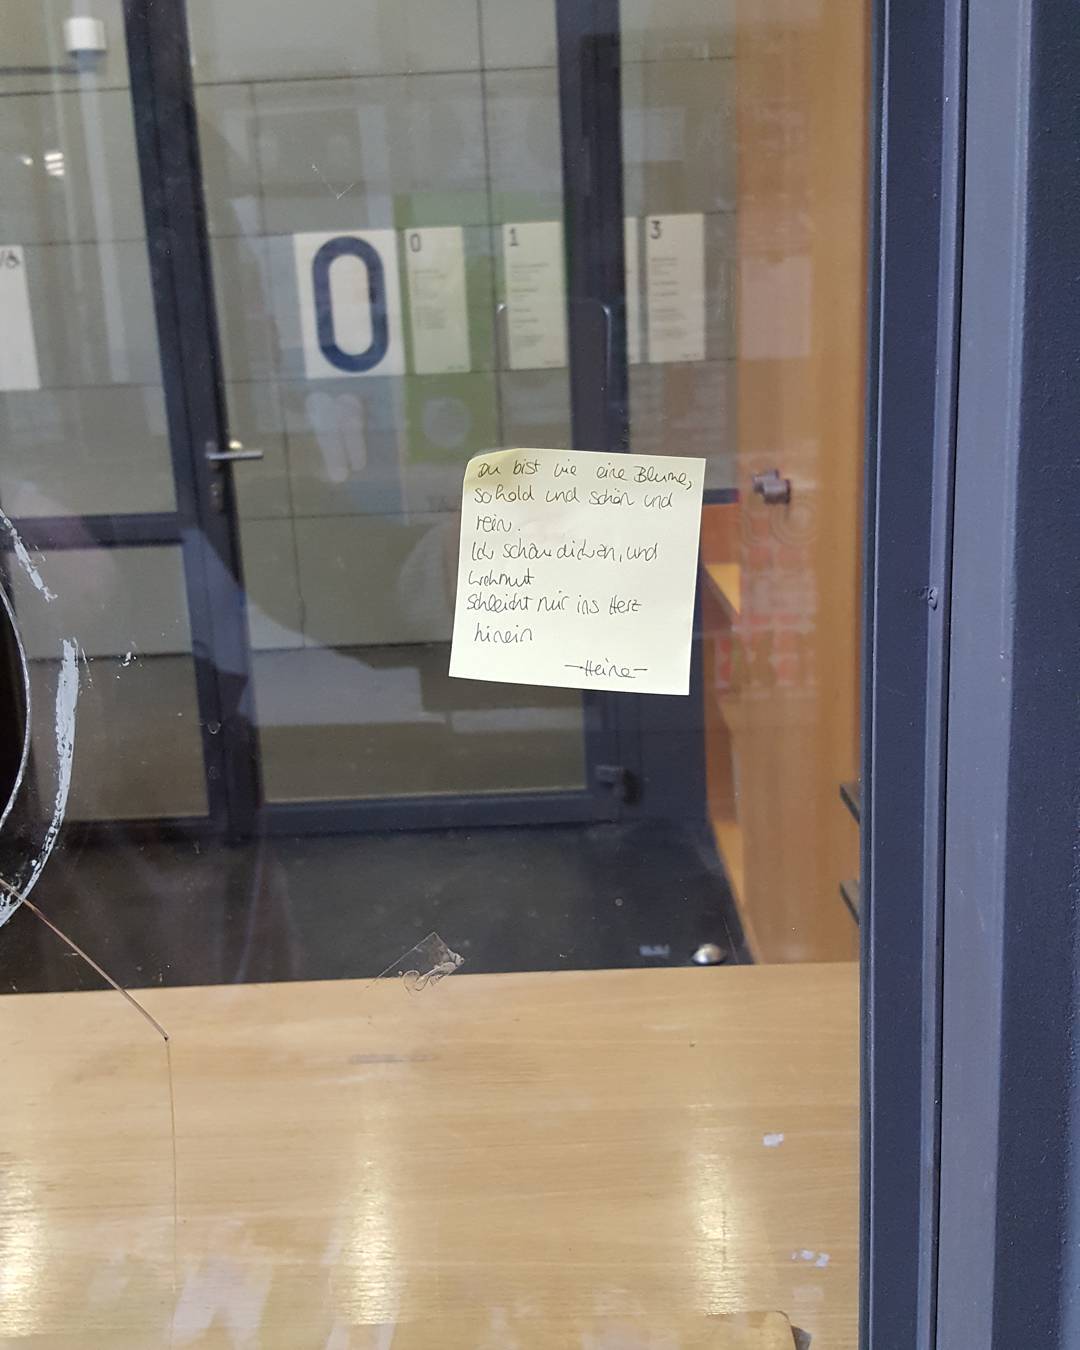 0
0
1
3
Du bist wie eine Blume,
so hold und schön und
rein.
Ich schau dich an, und
Wehmut
Schleicht mir ins Herz
hinein
-Heine-